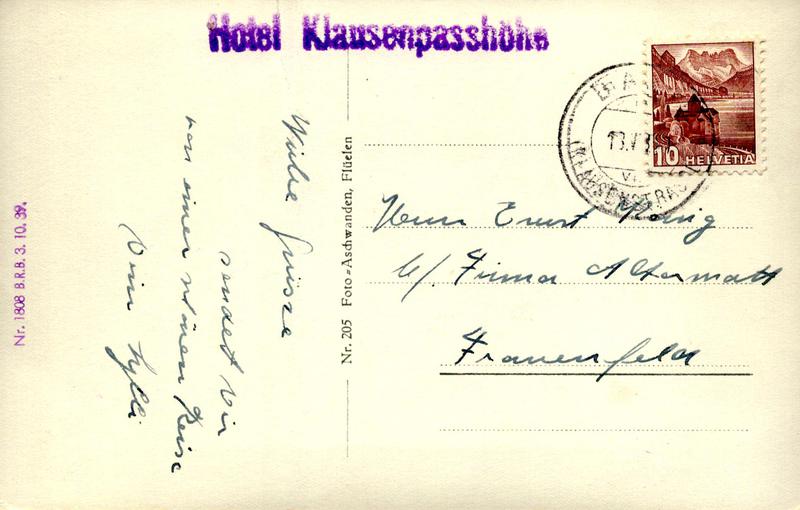 Hotel Klausenpasshöhe
10 HELVETIA
KLAUSENSTRA
Nr. 1808 B.R.B. 3. 10. 39.
Nr. 205 Foto-Aschwanden, Flüelen
Herrn Ernst König
b/ Firma Altermatt
Frauenfeld
Liebe Grüsse
sendet Dir
von einer schönen Reise
Dein